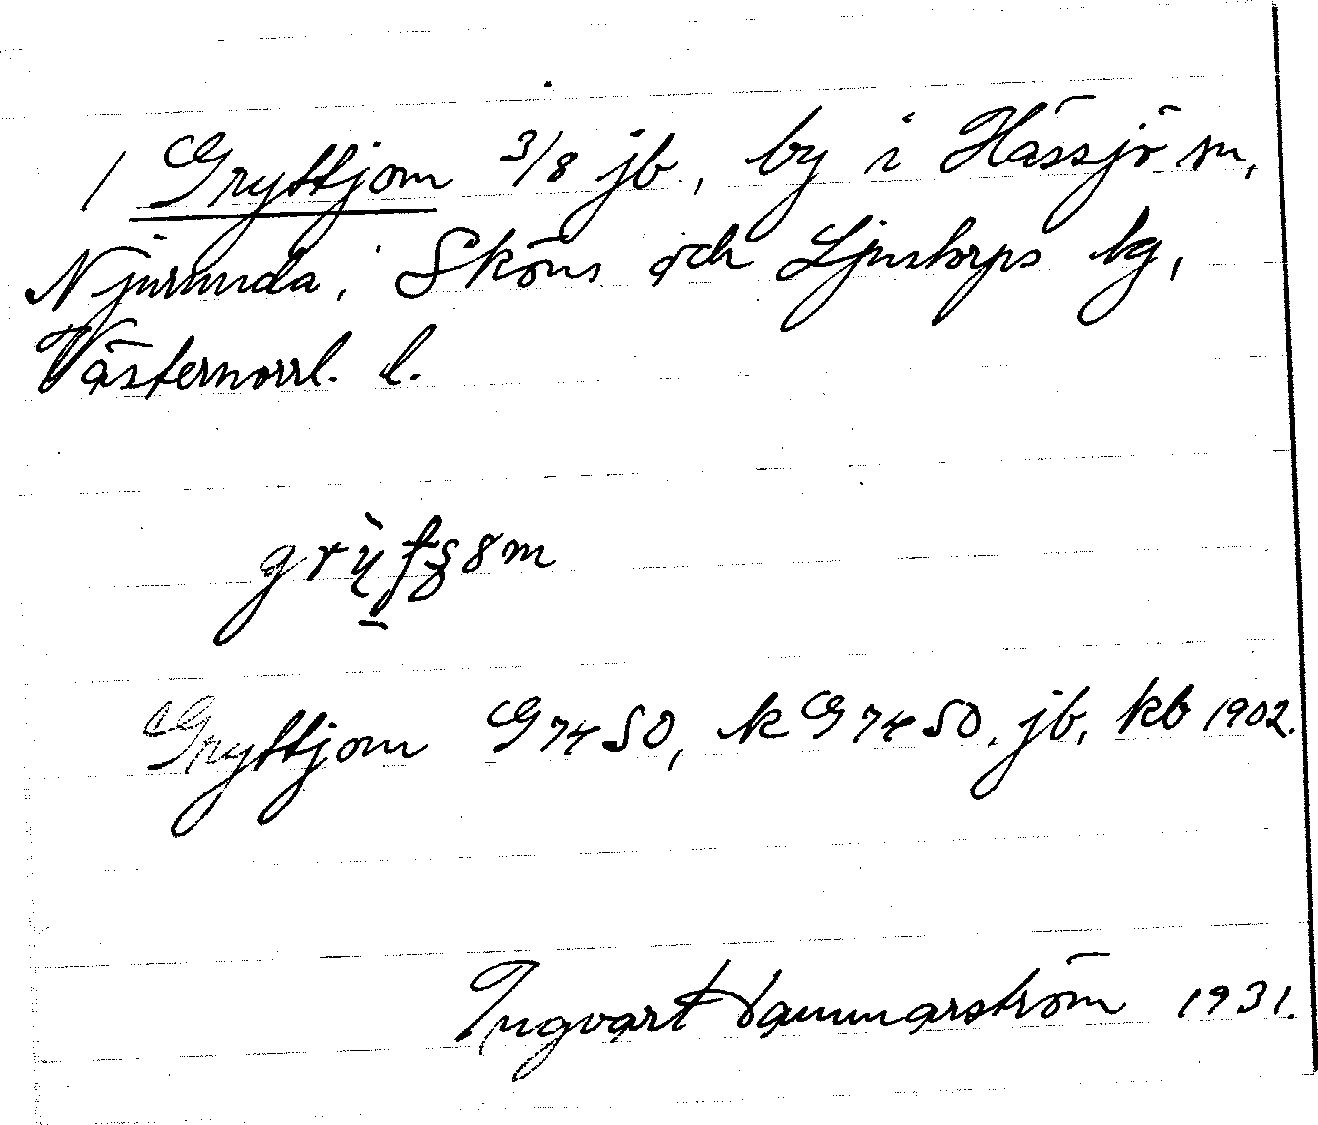 1 Gryttjom 3/8 jb, by i Hässjö sn,
Njurunda, Sköns och Ljustorps tg,
Västernorrl. l.
Gryttjom G 74 SO, k G 74 SO, jb, kb 1902.
Ingvart Hammarström 1931.